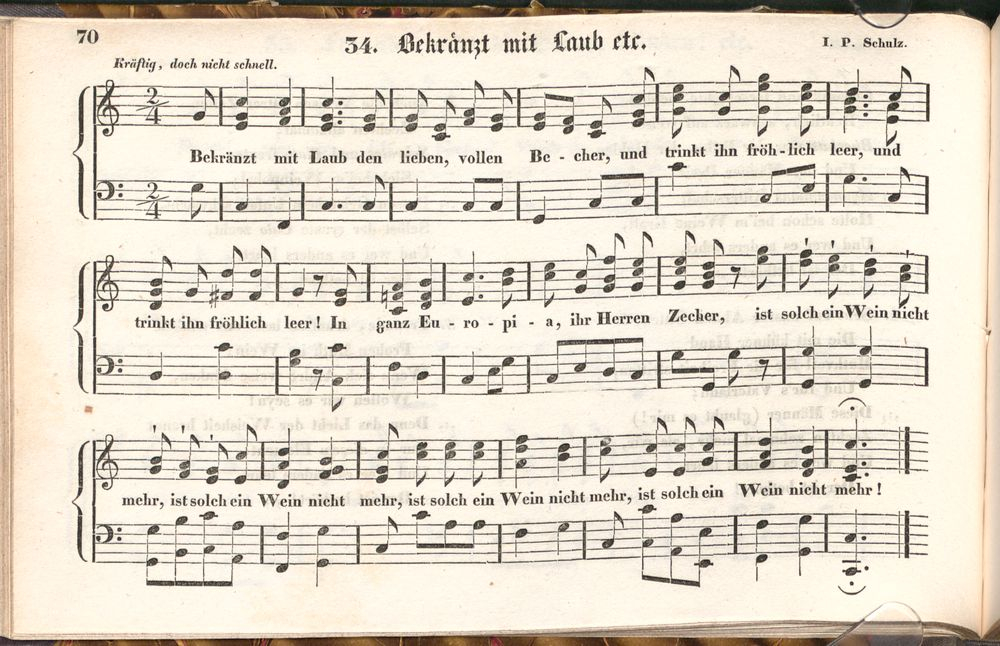 70
34. Bekränzt mit Laub etc.
I. P. Schulz.
Kräftig, doch nicht schnell.
Bekränzt mit Laub den lieben, vollen Be - cher, und trinkt ihn fröh - lich leer, und
trinkt ihn fröhlich leer! In ganz Eu - ro - pi - a, ihr Herren Zecher, ist solch ein Wein nicht
mehr, ist solch ein Wein nicht mehr, ist solch ein Wein nicht mehr, ist solch ein Wein nicht mehr!